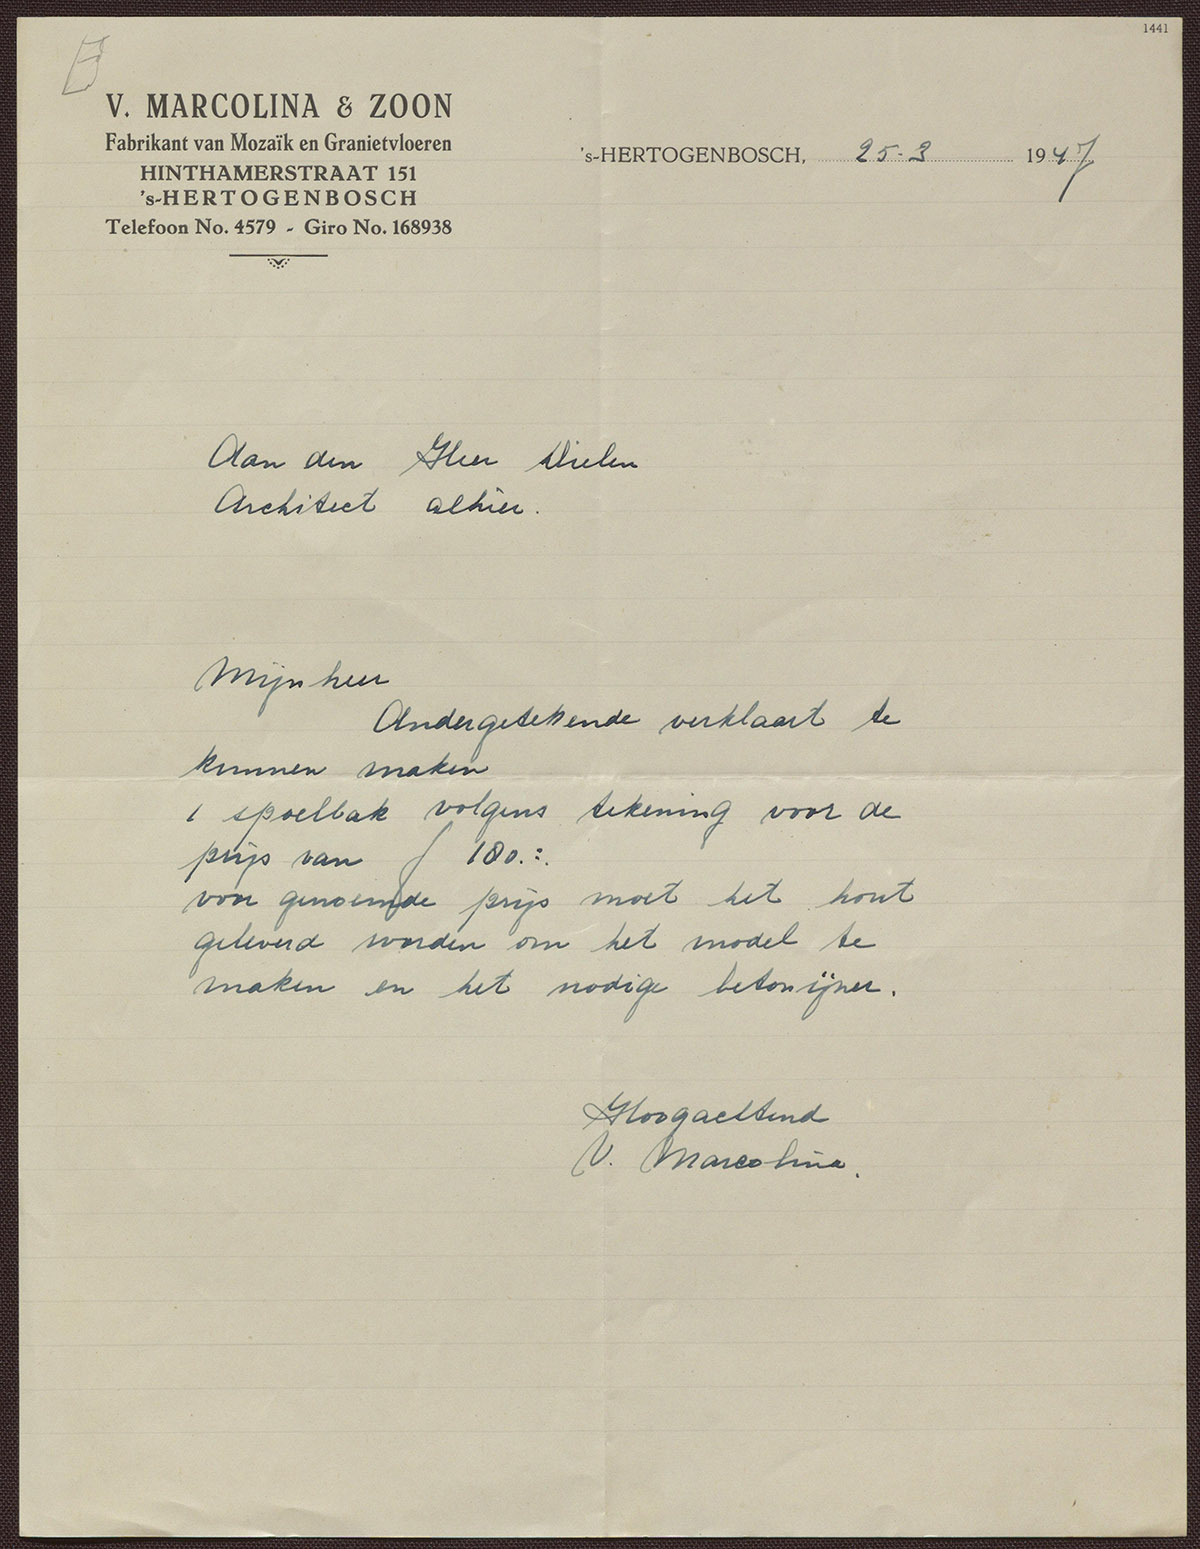 1441
V. MARCOLINA & ZOON
Fabrikant van Mozaïk en Granietvloeren
HINTHAMERSTRAAT 151
's-HERTOGENBOSCH
Telefoon No. 4579 - Giro No. 168938
's-HERTOGENBOSCH, 25-3 1947
Aan den Heer Dielen
Architect alhier.
Mijnheer
Ondergetekende verklaart te
kunnen maken
1 spoelbak volgens tekening voor de
prijs van f 180.=.
voor genoemde prijs moet het hout
geleverd worden om het model te
maken en het nodige betonijzer.
Hoogachtend
V. Marcolina.